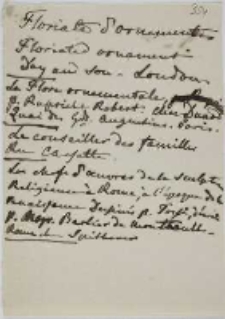 354
Floriated d'ornements
Floriated ornament
Day and Son. London
La Flore ornementale
p. Ruprich Robert. chez Dunod
Quai des Gds Augustins. Paris.
Le conseiller des familles
Rue Cassette
Les chefs d'œuvres de la sculpture
Religieuse à Rome, à l'époque de la
renaissance Dessinés p. Tosi,
p. Mgr. Barbier de Montault
Rome chez Spithöver